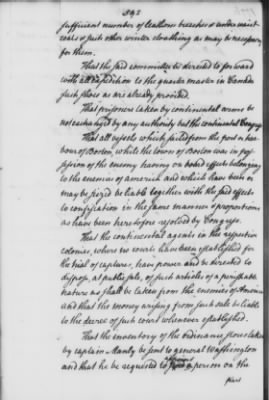 392
sufficient number of leathern breeches & under waist
coats & such other winter cloathing as may be necessary
for them.
That the said committee be directed to forward
with all expedition to the quarter master in Canada
such shoes as are already provided.
That prisoners taken by continental arms be
not exchanged by any authority but the continental Congress
That all vessels which sailed from the port or har
bour of Boston, while the town of Boston was in pos
session of the enemy having on board effects belonging
to the enemies of america and which have been or
may be seized be liable together with the said effects
to confiscation in the same manner & proportions
as have been heretofore resolved by Congress.
That the continental agents in the respective
colonies, where no courts have been established for
the trial of captures, have power and be directed to
dispose, at public sale, of such articles of a perishable
nature as shall be taken from the enemies of America
and that the money arising from such sale be liable
to the decree of such court whenever established.
That the inventory of the ordnance stores taken
by captain Manly be sent to general Washington
and that he be requested to appoint a person on the
part